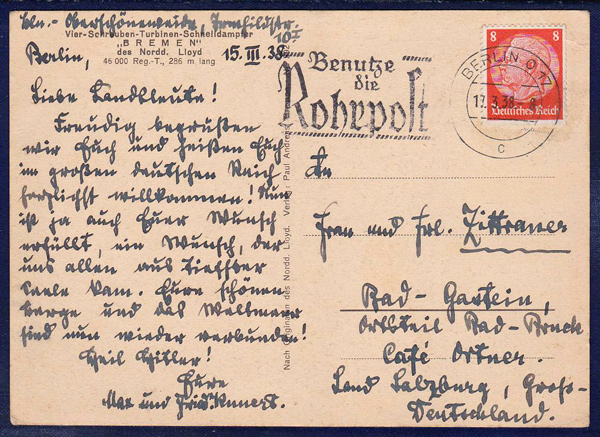 Bln.-Oberschöneweide, Irmhildstr.
10I
Vier-Schrauben-Turbinen-Schnelldampfer
„BREMEN"
des Nordd. Lloyd
46 000 Reg.-T., 286 m lang
Berlin, 15. III. 38.
Liebe Landsleute!
Freudig begrüßen
wir Euch und heißen Euch
im großen deutschen Reich
herzlichst willkommen! Nun
ist ja auch Euer Wunsch
erfüllt, ein Wunsch, der
uns allen aus tiefster
Seele kam. Eure schönen
Berge und das Weltmeer
sind nun wieder verbunden!
Heil Hitler!
Eure
Max und Fried.
Nach Originalen des Nordd. Lloyd. Verlag: Paul
Benutze
die
Rohrpost
BERLIN O 17
17.3.38
c
8 8
Deutsches Reich
An
Frau und Frl. Zittrauer
Bad-Gastein,
Ortsteil Bad-Bruck
Café Ortner.
Land Salzburg, Groß-
Deutschland.